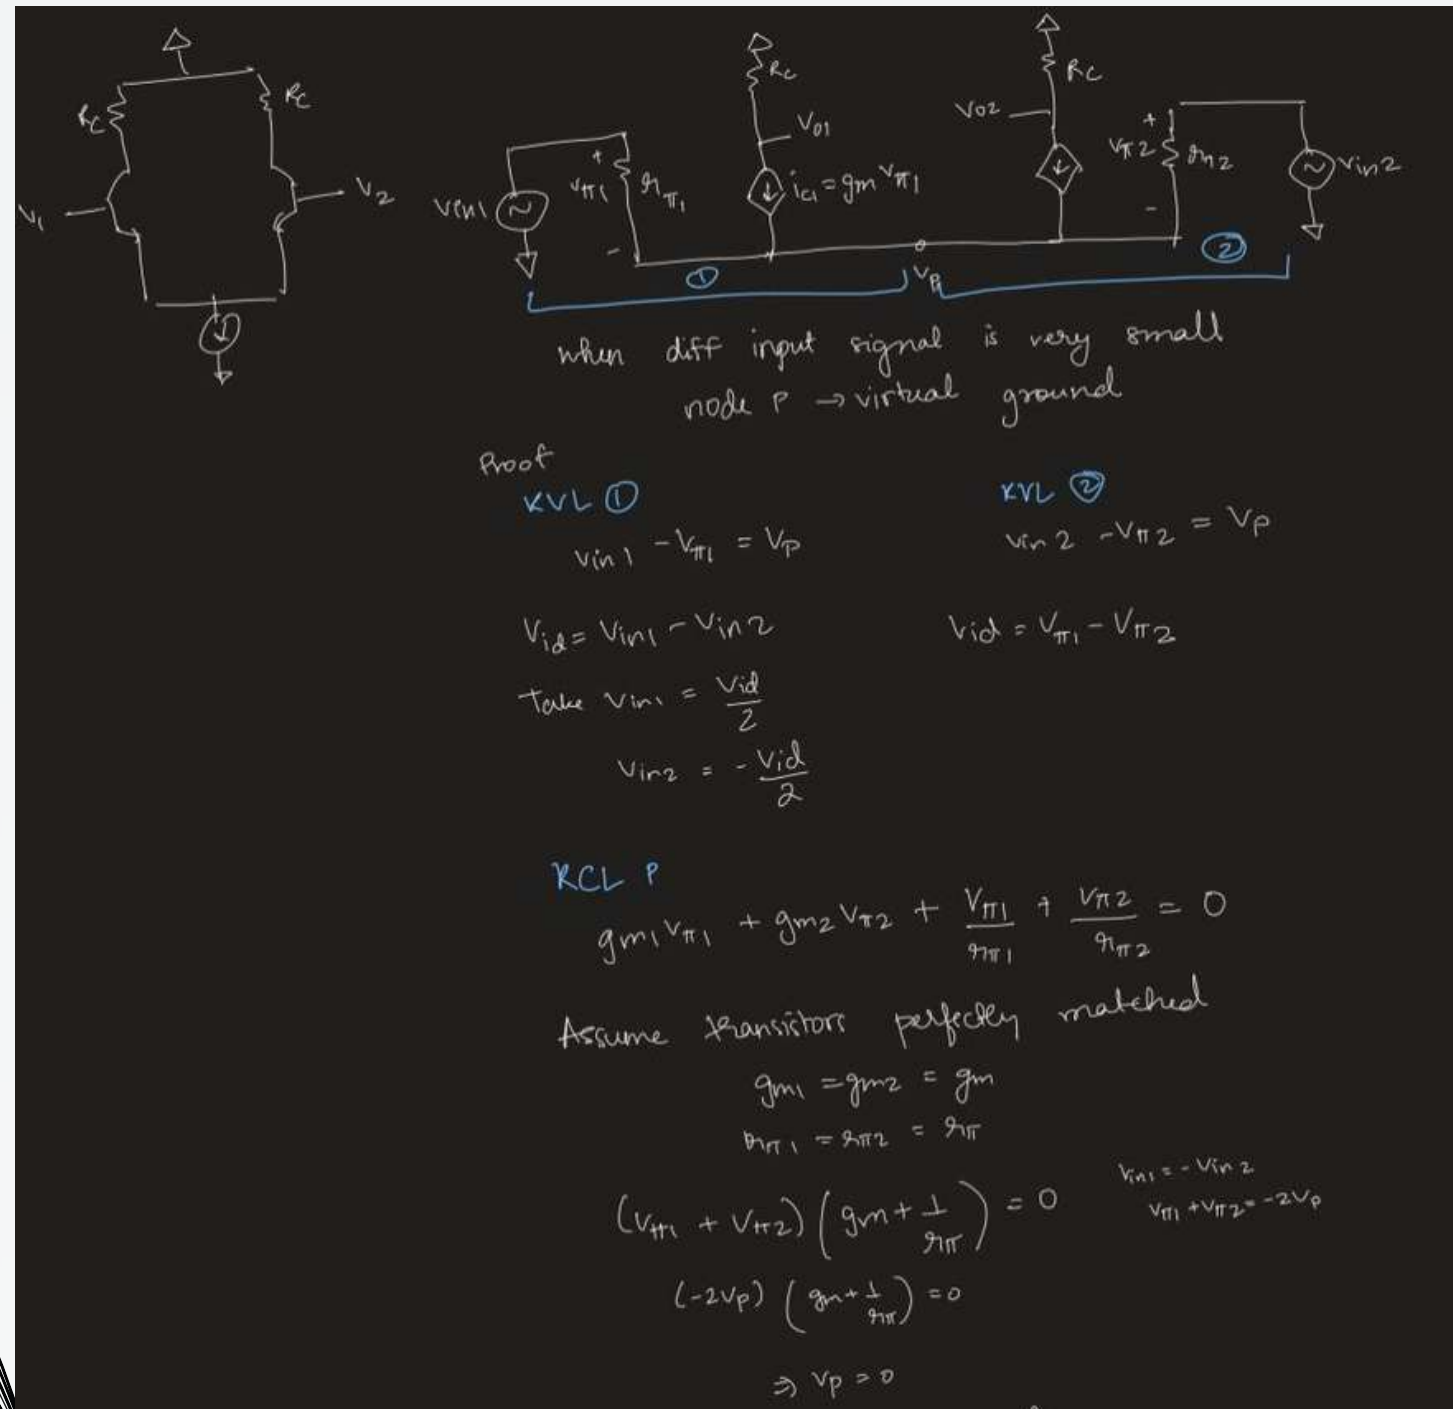 Rc
Rc
V1
V2
Vin1
+
Vπ1
-
rπ1
Rc
Vo1
ic1 = gm Vπ1
①
Vp
Vo2
Rc
+
Vπ2
-
rπ2
②
Vin2
when diff input signal is very small
node P → virtual ground
Proof
KVL ①
Vin1 - Vπ1 = Vp
KVL ②
Vin2 - Vπ2 = Vp
Vid = Vin1 - Vin2
Vid = Vπ1 - Vπ2
Take Vin1 = Vid/2
Vin2 = - Vid/2
KCL P
gm1 Vπ1 + gm2 Vπ2 + Vπ1/rπ1 + Vπ2/rπ2 = 0
Assume transistors perfectly matched
gm1 = gm2 = gm
rπ1 = rπ2 = rπ
(Vπ1 + Vπ2) (gm + 1/rπ) = 0
Vin1 = - Vin2
Vπ1 + Vπ2 = -2Vp
(-2Vp) (gm + 1/rπ) = 0
⇒ Vp = 0